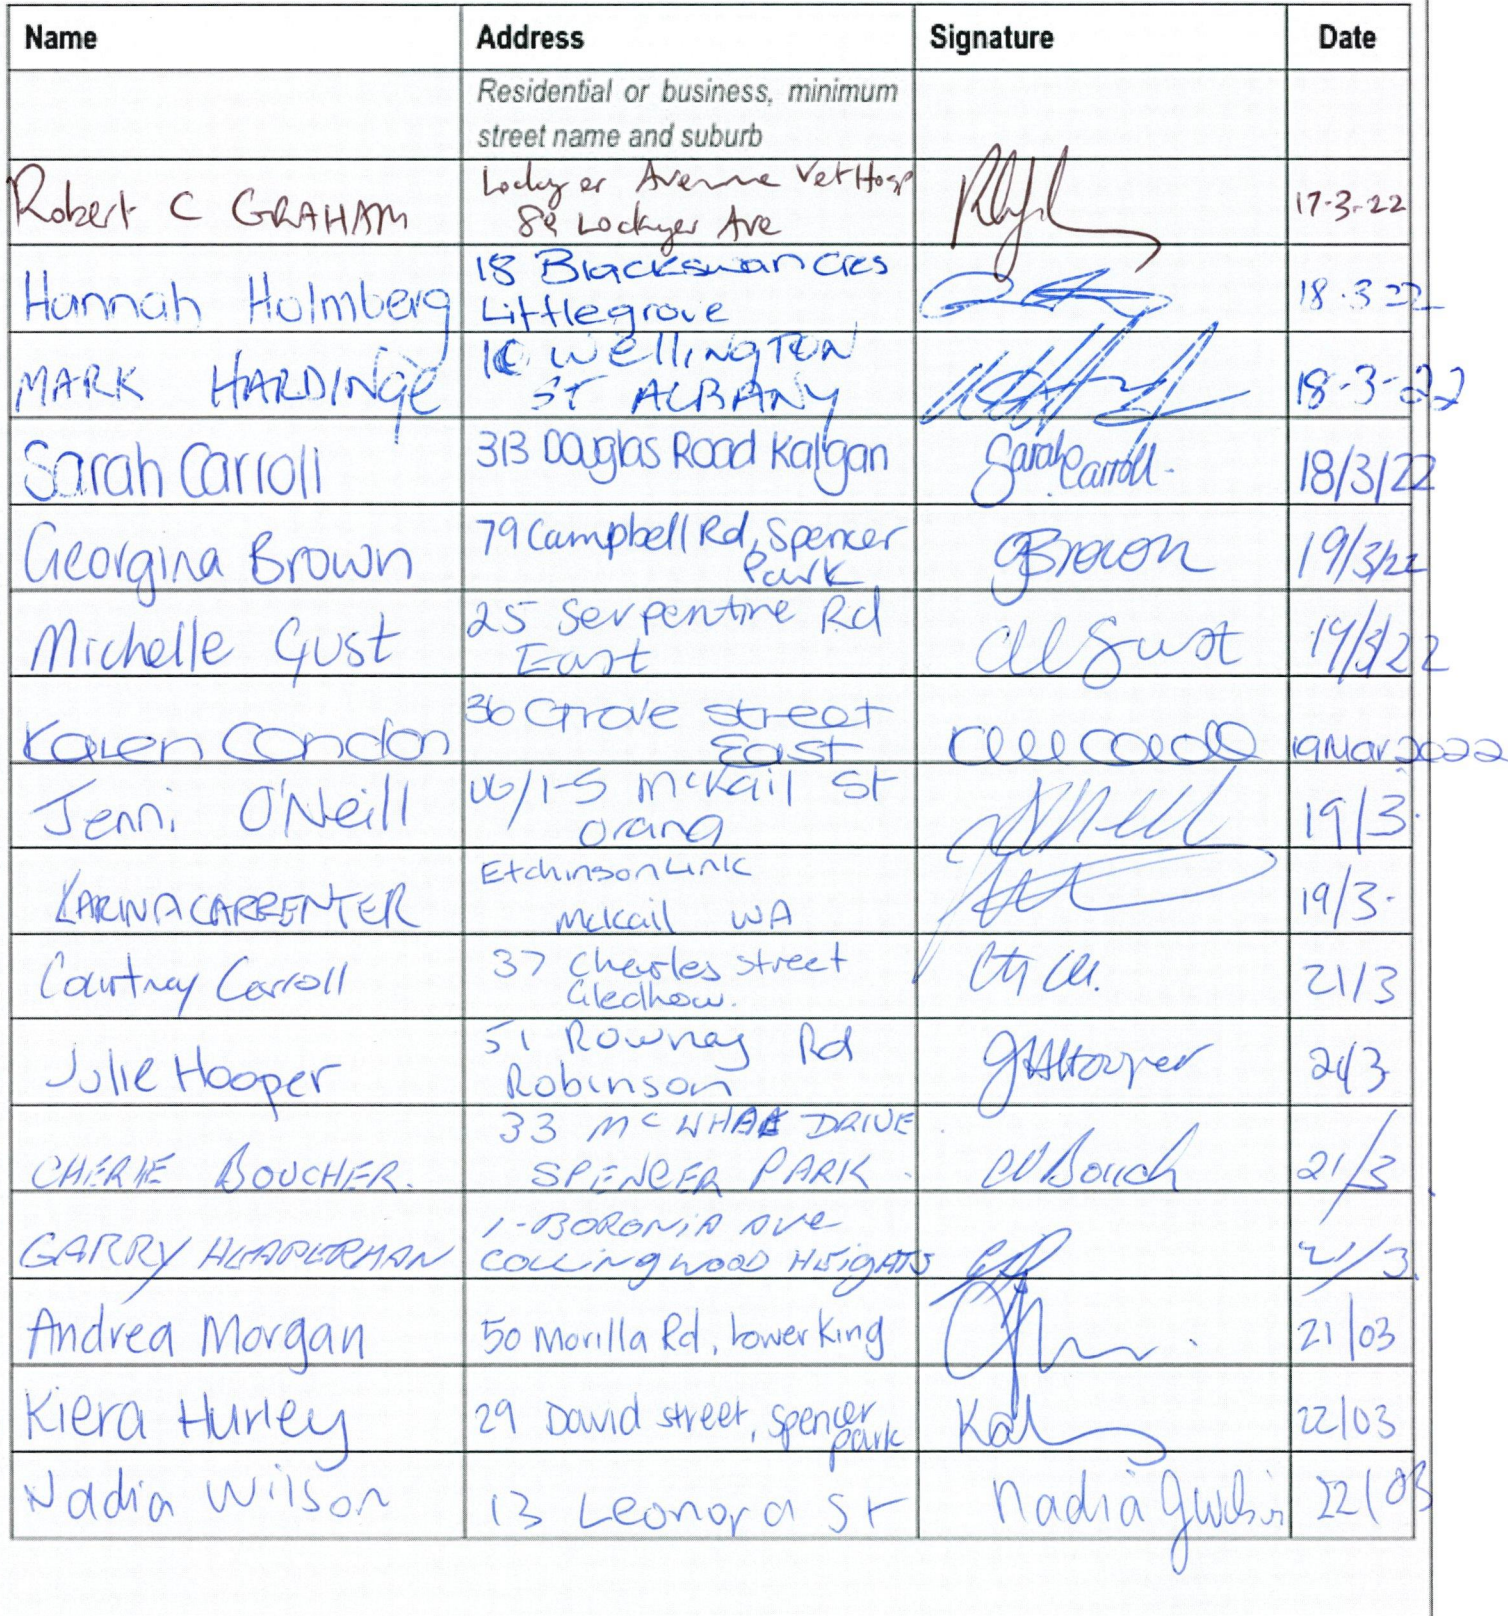 Name Address Signature Date
Residential or business, minimum
street name and suburb
Robert C GRAHAM Lockyer Avenue Vet Hosp 17-3-22
89 Lockyer Ave
Hannah Holmberg 18 Blackswan Cres 18.3 22
Littlegrove
MARK HARDINGE 10 WELLINGTON 18-3-22
ST ALBANY
Sarah Carroll 313 Douglas Road Kalgan Sarah Carroll. 18/3/22
Georgina Brown 79 Campbell Rd, Spencer GBrown 19/3/22
Park
Michelle Gust 25 Serpentine Rd Gust 19/3/22
East
Karen Condon 36 Grove Street 19 Mar 2022
East
Jenni O'Neill 1-5 McKail St 19/3.
Orana
KARINA CARPENTER Etchinson Link 19/3.
McKail WA
Courtney Carroll 37 Charles street 21/3
Gledhow.
Julie Hooper 51 Rowney Rd Hooper 21/3
Robinson
CHERIE BOUCHER. 33 MC WHAE DRIVE 21/3
SPENCER PARK.
GARRY 1-BORONIA AVE 21/3
COLLINGWOOD HEIGHTS
Andrea Morgan 50 Morilla Rd, Lower King 21/03
Kiera Hurley 29 David street, Spencer 22/03
park
Nadia Wilson 13 Leonora St Nadia 22/03